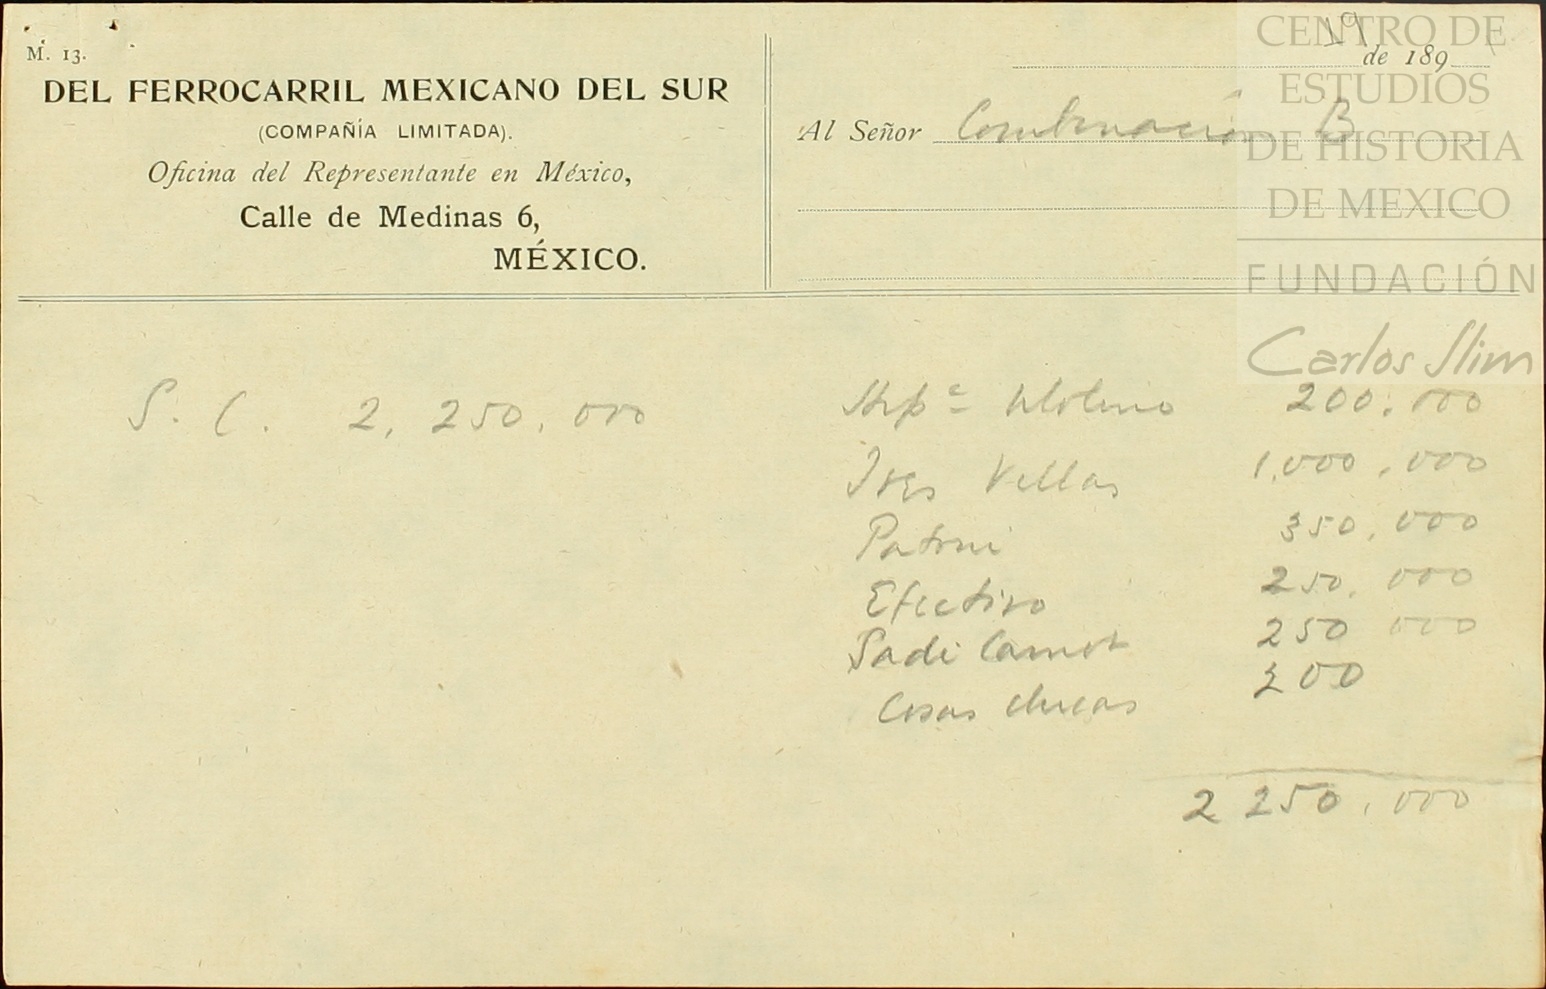 M. 13.
DEL FERROCARRIL MEXICANO DEL SUR
(COMPAÑÍA LIMITADA).
Oficina del Representante en México,
Calle de Medinas 6,
MÉXICO.
19
de 189
Al Señor Combinación B
CENTRO DE
ESTUDIOS
DE HISTORIA
DE MEXICO
FUNDACIÓN
Carlos Slim
S. C. 2,250,000
Hipª Molino 200,000
Tres Villas 1,000,000
Patoni 350,000
Efectivo 250,000
Sadi Carnot 250 000
Cosas chicas 200
2 250,000